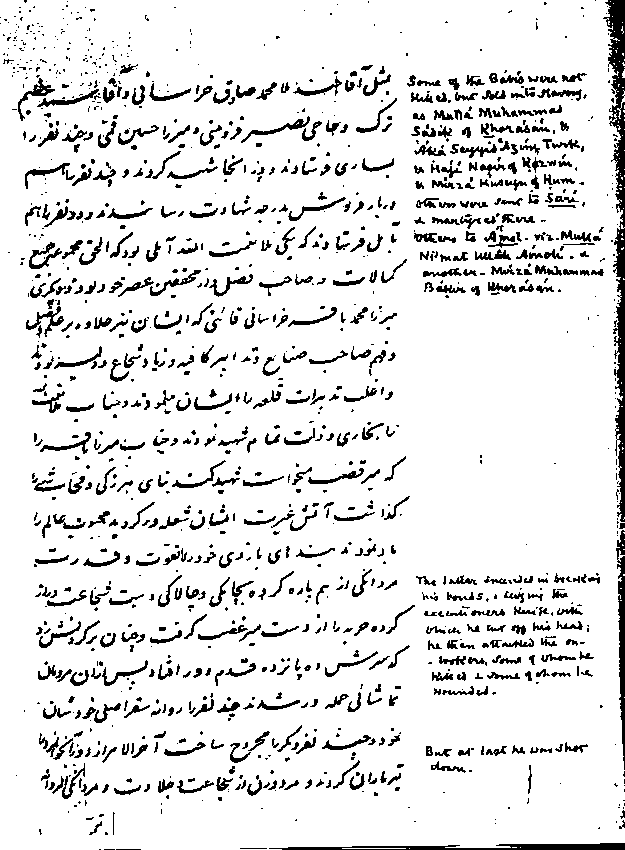 بمثل آقا خوند ملا محمد صادق خراسانی و آقا سید عظیم
ترک و حاجی نصیر قزوینی و میرزا حسین قمی و چند نفر را
بساری فرستادند و در انجا شهید کردند و چند نفر را هم
در بارفروش بدرجه شهادت رسانیدند و دو نفر را هم
بآمل فرستادند که یکی ملا نعمت الله آملی بود که الحق مجموعه جمیع
کمالات و صاحب فضل و از محققین عصر خود بود و دیگری
میرزا محمد باقر خراسانی قائنی که ایشان نیز علاوه بر علم و فضل
و فهم صاحب صنایع و تدابیر کافیه و زیاد شجاع و دلیر بودند
و اغلب تدبیرات قلعه را ایشان مینمودند و جناب ملا نعمت الله
را بخواری و ذلت تمام شهید نمودند و جناب میرزا باقر را
که میر غضب میخواست شهید کند بنای هرزگی و فحاشی را
گذاشت آتش غیرت ایشان شعله ور گردید محبوب عالم را
یاد نمودند بندهای بازوی خود را بقوت و قدرت
مردانگی از هم پاره کرده بچابکی و چالاکی دست شجاعت دراز
کرده حربه را از دست میر غضب گرفت و چنان بر گردنش زد
که سرش ده پانزده قدم دور افتاد پس از آن بر مردمان
تماشائی حمله ور شدند چند نفر را روانه مقر اصلی خودشان
نمود و چند نفر دیگر را مجروح ساخت آخر الامر از دور
تیر باران کردند و مرد و زن از شجاعت و جلادت و مردانگی
Some of the Bábís were not
killed, but sold into slavery,
as Mullá Muhammad
Sádik of Khorásán, &
Áká Seyyid Azím, Turk,
& Hájí Nasír of Kazwín,
& Mírzá Huseyn of Kum.
Others were sent to Sárí,
& martyred there.
Others to Ámol - viz. Mullá
Ni'mat Ulláh Ámolí, &
another - Mírzá Muhammad
Bákir of Khorásán.
The latter succeeded in breaking
his bonds, & seizing the
executioners knife, with
which he cut off his head;
he then attacked the on-
-lookers, some of whom he
killed & some of whom he
wounded.
But at last he was shot
down.